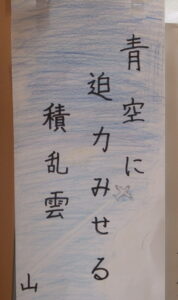 青空に
迫力みせる
積乱雲
山